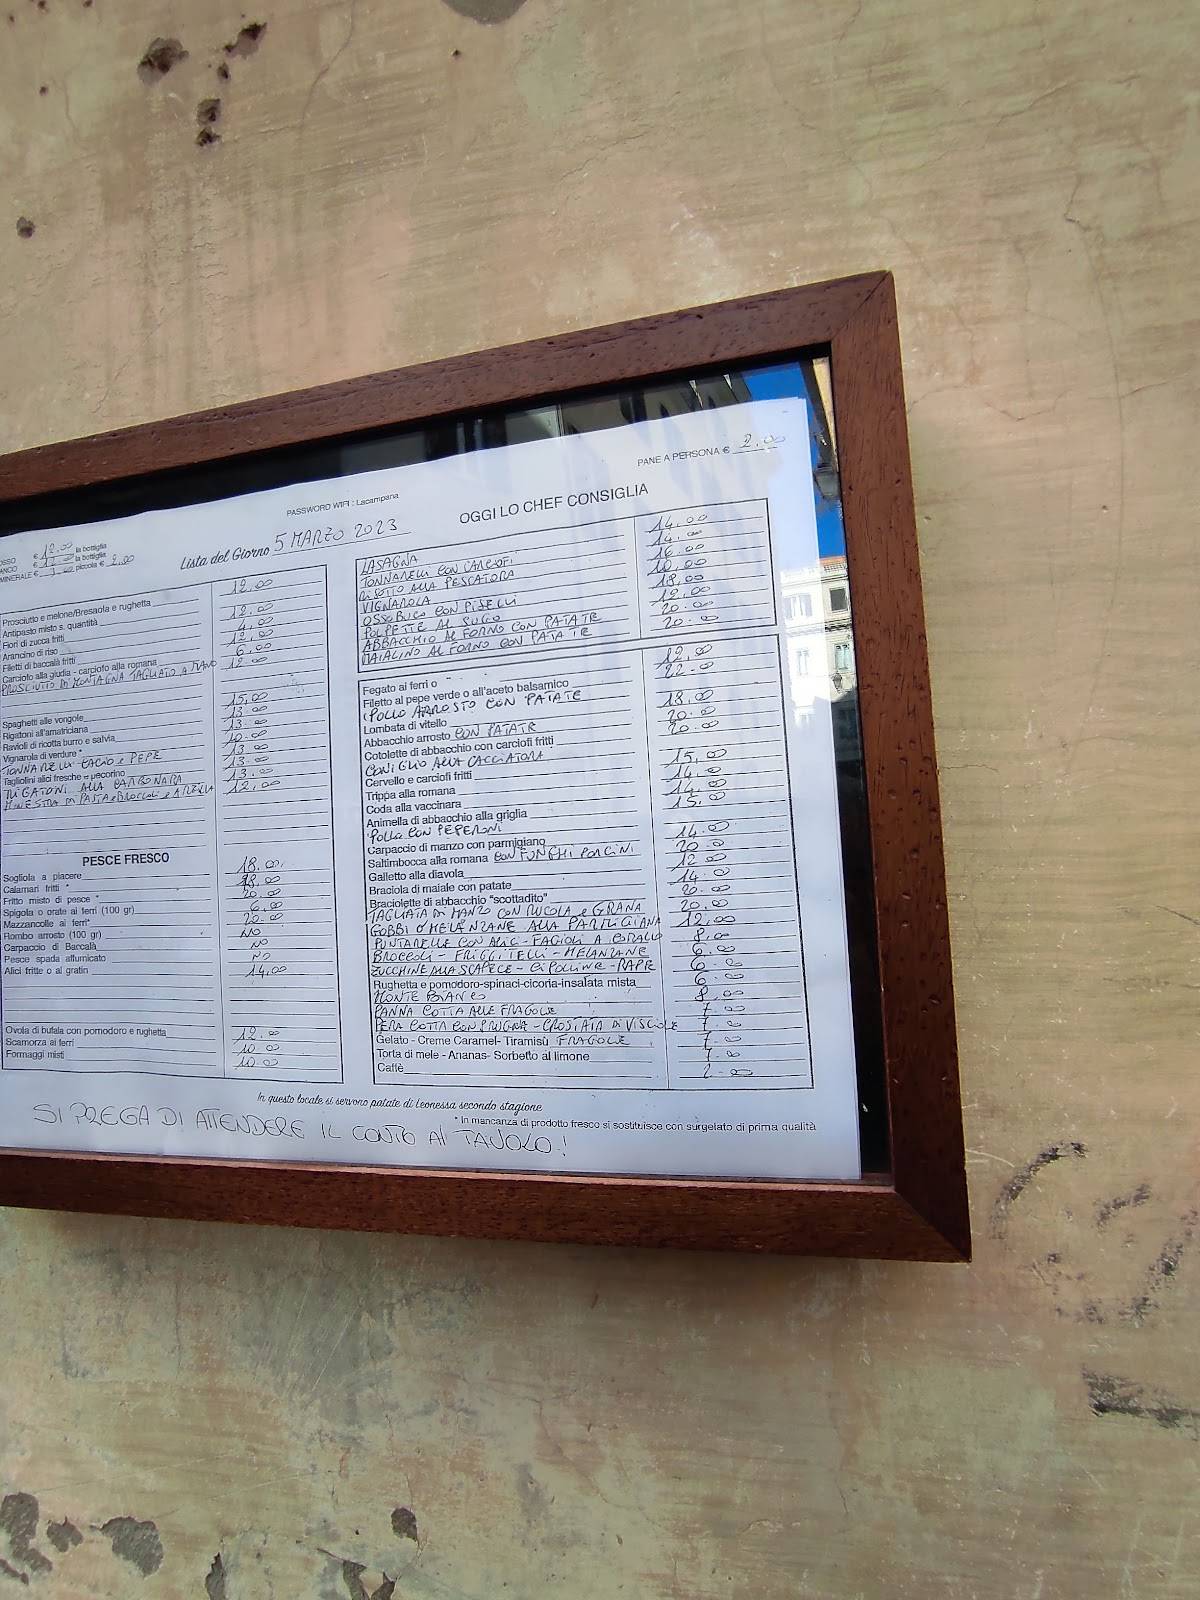 PANE A PERSONA € 2.00
PASSWORD WIFI : Lacampana
OSSO € 12.00 la bottiglia
ANCO € la bottiglia
MINERALE € piccola € 2.00
Lista del Giorno 5 MARZO 2023
Prosciutto e melone/Bresaola e rughetta 12.00
Antipasto misto s. quantità 12.00
Fiori di zucca fritti 4.00
Arancino di riso 12.00
Filetti di baccalà fritti 6.00
Carciofo alla giudia - carciofo alla romana 12.00
PROSCIUTTO DI MONTAGNA TAGLIATO A MANO
Spaghetti alle vongole 15.00
Rigatoni all'amatriciana 13.00
Ravioli di ricotta burro e salvia 13.00
Vignarola di verdure * 10.00
TONNARELLI CACIO e PEPE 13.00
Tagliolini alici fresche e pecorino 13.00
RIGATONI ALLA CARBONARA 13.00
MINESTRA DI PASTA e BROCCOLI e ARZILLA 12.00
PESCE FRESCO
Sogliola a piacere 18.00
Calamari fritti * 18.00
Fritto misto di pesce * 20.00
Spigola o orate ai ferri (100 gr) 6.00
Mazzancolle ai ferri* 20.00
Rombo arrosto (100 gr) NO
Carpaccio di Barcalà NO
Pesce spada affumicato NO
Alici fritte o al gratin 14.00
Ovola di bufala con pomodoro e rughetta 12.00
Scamorza ai ferri 10.00
Formaggi misti 10.00
OGGI LO CHEF CONSIGLIA
LASAGNA 14.00
TONNARELLI CON CARCIOFI 14.00
RISOTTO ALLA PESCATORA 16.00
VIGNAROLA 10.00
OSSOBUCO CON PISELLI 18.00
POLPETTE AL SUGO 12.00
ABBACCHIO AL FORNO CON PATATE 20.00
MAIALINO AL FORNO CON PATATE 20.00
Fegato ai ferri o 12.00
Filetto al pepe verde o all'aceto balsamico 22.00
POLLO ARROSTO CON PATATE
Lombata di vitello 18.00
Abbacchio arrosto CON PATATE 20.00
Cotolette di abbacchio con carciofi fritti 20.00
CONIGLIO ALLA CACCIATORA
Cervello e carciofi fritti 15.00
Trippa alla romana 14.00
Coda alla vaccinara 14.00
Animella di abbacchio alla griglia 15.00
POLLO CON PEPERONI
Carpaccio di manzo con parmigiano 14.00
Saltimbocca alla romana CON FUNGHI PORCINI 20.00
Galletto alla diavola 12.00
Braciola di maiale con patate 14.00
Braciolette di abbacchio "scottadito" 20.00
TAGLIATA DI MANZO CON RUCOLA e GRANA 20.00
GOBBI O MELANZANE ALLA PARMIGIANA 12.00
PUNTARELLE CON ALICI - FAGIOLI A CORALLO 8.00
BROCCOLI - FRIGGITELLI - MELANZANE 6.00
ZUCCHINE ALLA SCAPECE - CIPOLLINE - RAPE 6.00
Rughetta e pomodoro-spinaci-cicoria-insalata mista 6.00
MONTE BIANCO 8.00
PANNA COTTA ALLE FRAGOLE 7.00
PERA COTTA CON PRUGNA - CROSTATA DI VISCIOLE 7.00
Gelato - Creme Caramel- Tiramisù FRAGOLE 7.00
Torta di mele - Ananas- Sorbetto al limone 7.00
Caffè 2.00
In questo locale si servono patate di Leonessa secondo stagione
* In mancanza di prodotto fresco si sostituisce con surgelato di prima qualità
SI PREGA DI ATTENDERE IL CONTO AL TAVOLO!